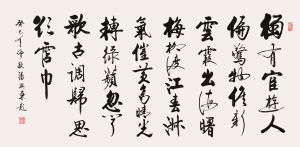 獨有宦遊人
偏驚物候新
雲霞出海曙
梅柳渡江春淑
氣催黃鳥晴光
轉綠蘋忽聞
歌古調歸思
欲霑巾
癸巳年